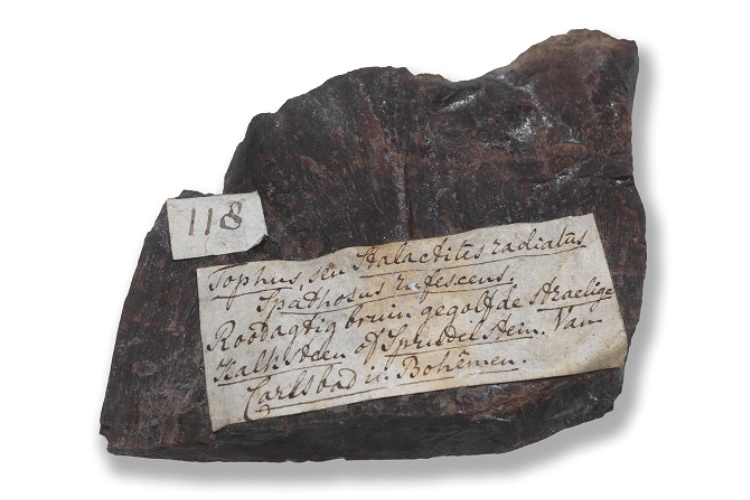 118
Tophus, seu Stalactites radiatus
Spathosus rufescens.
Roodagtig bruin gegolfde straelige
Kalksteen of Sprudelstein. Van
Carlsbad in Bohêmen.